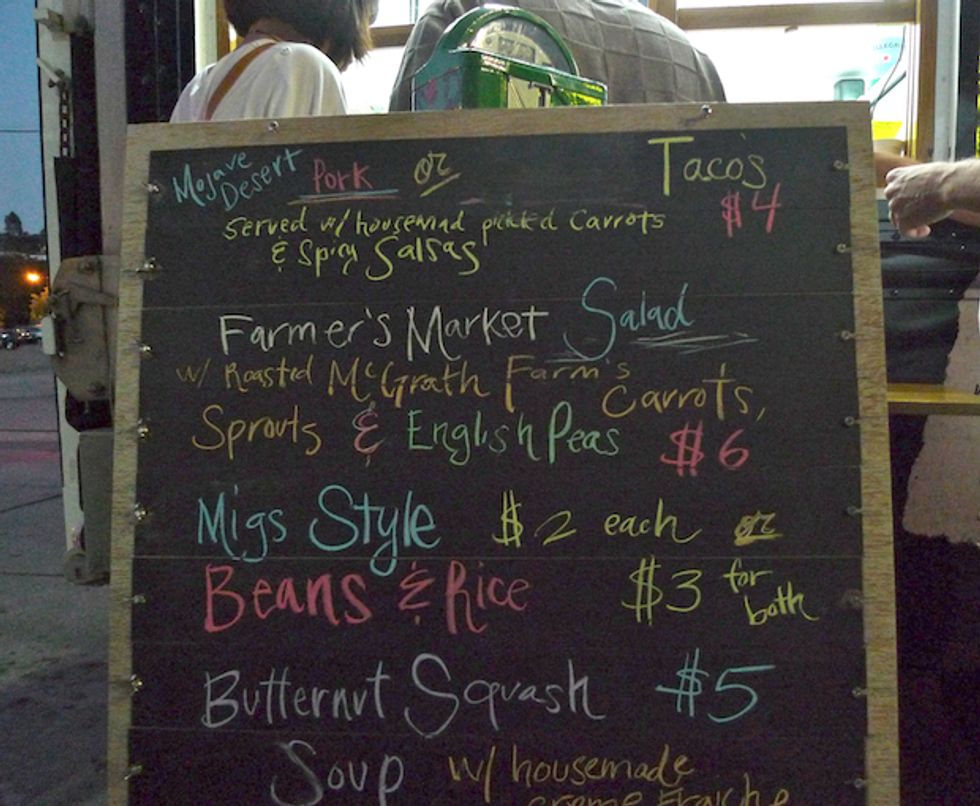 Mojave Desert Pork or Tacos
$4
served w/ housemad pickled carrots
& Spicy Salsas
Farmer's Market Salad
w/ Roasted McGrath Farm's
Carrots,
Sprouts & English Peas $6
Migs Style $2 each or
Beans & Rice $3 for both
Butternut Squash $5
Soup w/ housemade
creme Fraiche